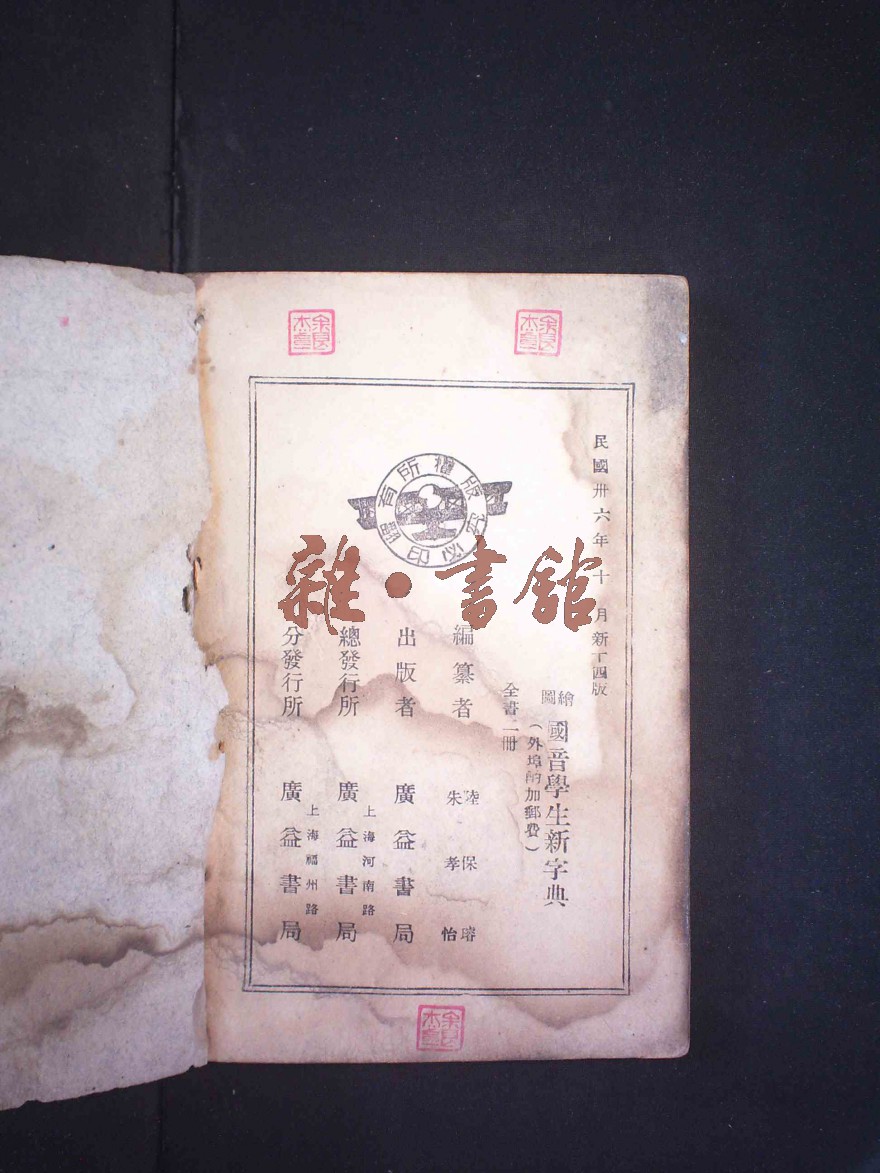 民國卅六年十月新十四版
繪圖國音學生新字典
（外埠酌加郵費）
全書二冊
編纂者 陸保璿 朱孝怡
出版者 廣益書局
總發行所 上海河南路 廣益書局
分發行所 上海福州路 廣益書局
版權所有
翻印必究
雜·書館